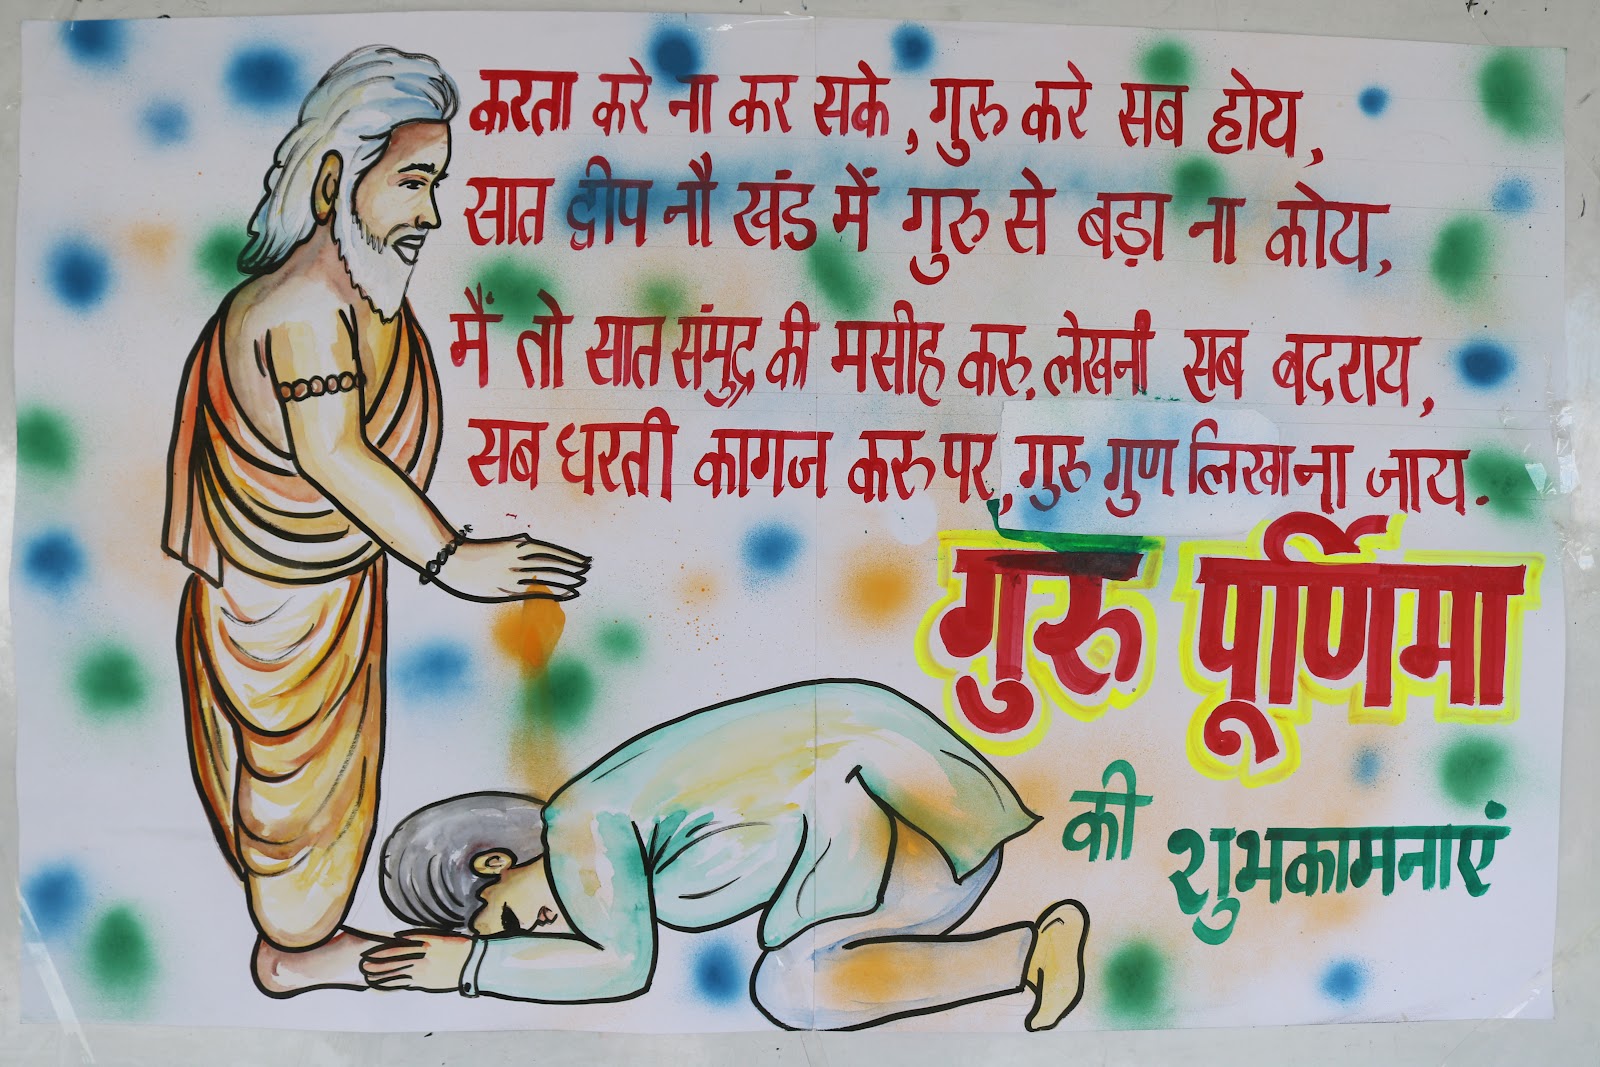 करता करे ना कर सके, गुरु करे सब होय,
सात द्वीप नौ खंड में गुरु से बड़ा ना कोय,
मैं तो सात संमुद्र की मसीह करु, लेखनी सब बदराय,
सब धरती कागज करु पर, गुरु गुण लिखा ना जाय.
गुरु पूर्णिमा
की
शुभकामनाएं